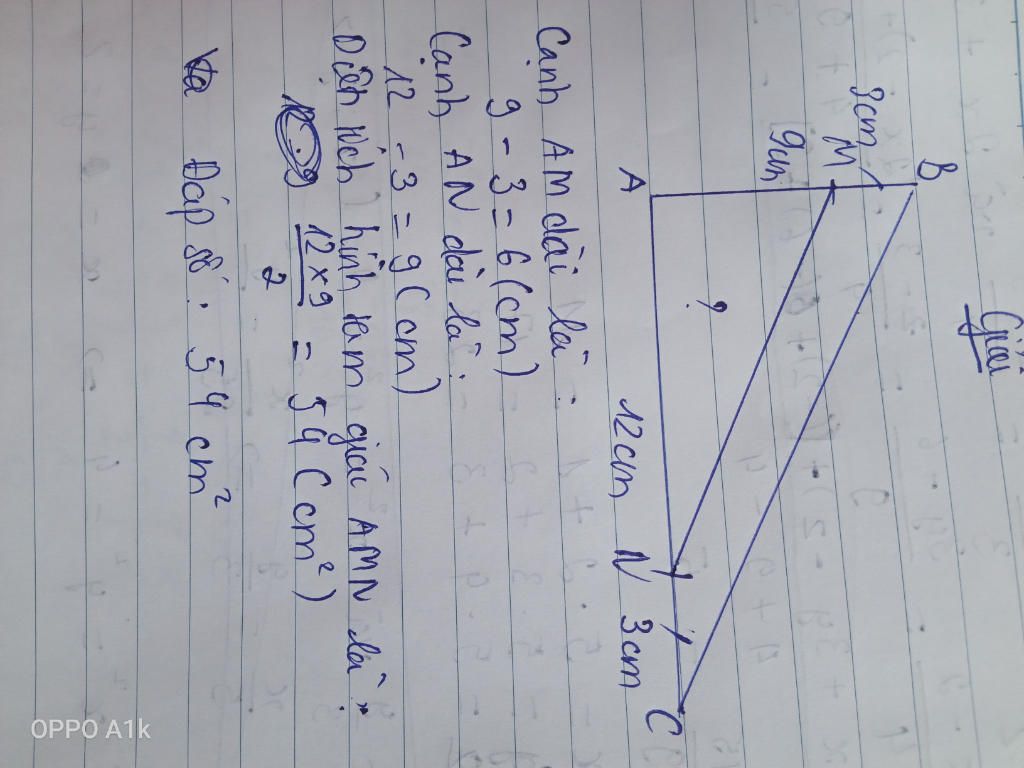 Giải
B
3cm
M
9cm
A
?
12cm
N
3cm
C
Cạnh AM dài là :
9 - 3 = 6 (cm)
Cạnh AN dài là :
12 - 3 = 9 (cm)
Diện tích hình tam giác AMN là :
12 x 9
2
= 54 (cm²)
Đáp số : 54 cm²
OPPO A1k